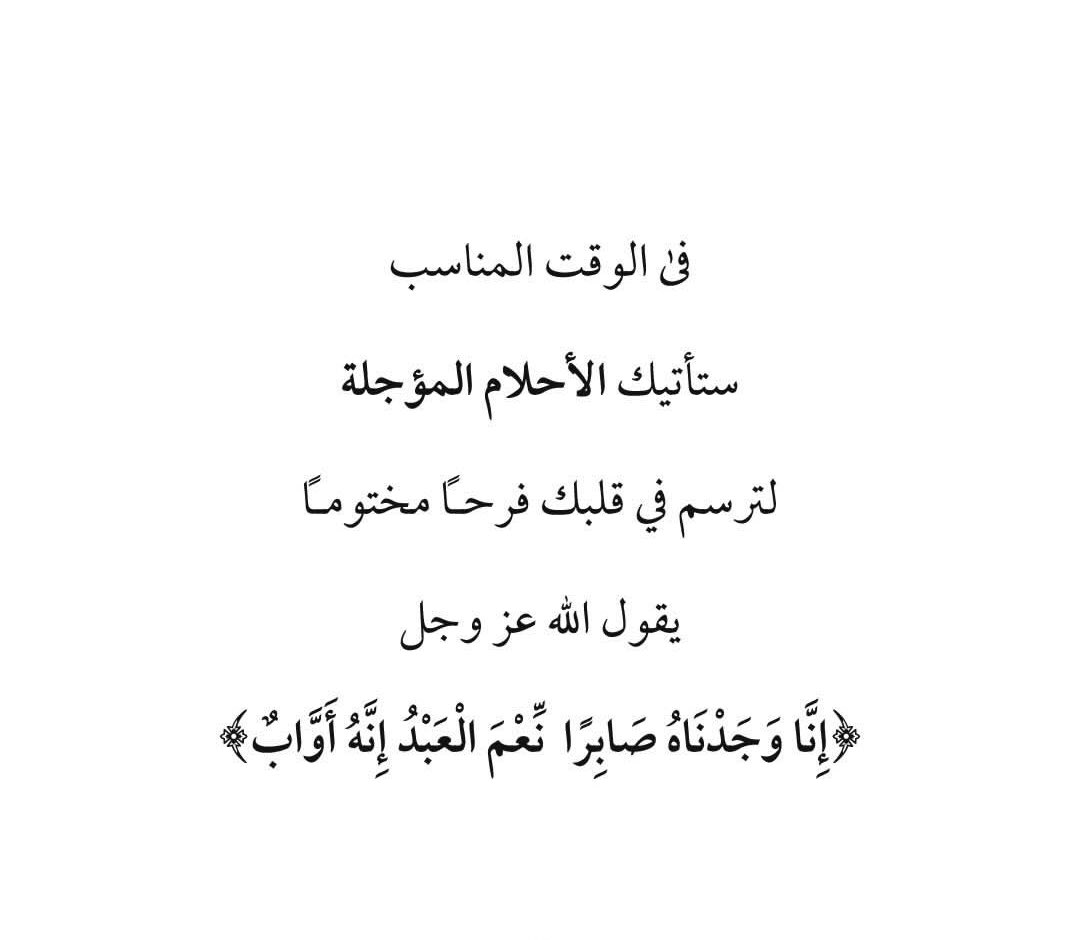 فى الوقت المناسب
ستأتيك الأحلام المؤجلة
لترسم في قلبك فرحـًا مختومـًا
يقول الله عز وجل
﴿إِنَّا وَجَدْنَاهُ صَابِرًا نِّعْمَ الْعَبْدُ إِنَّهُ أَوَّابٌ﴾